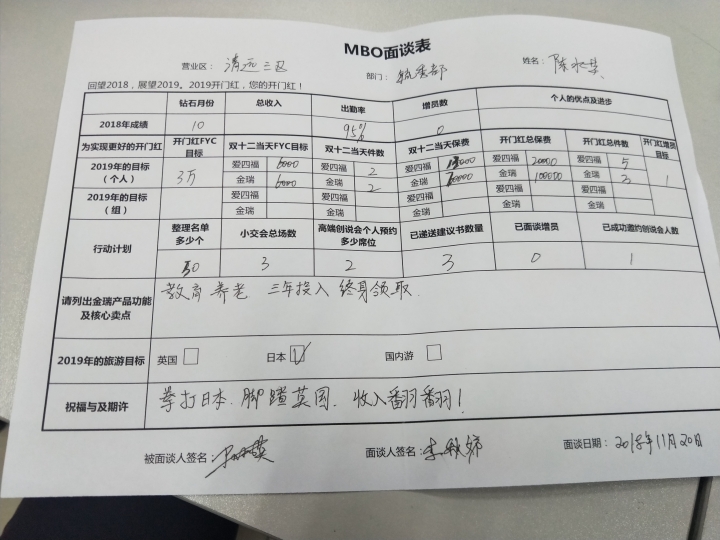 MBO面谈表
营业区： 清远三区 部门： 姓名： 陈
回望2018，展望2019。2019开门红，您的开门红！
钻石月份 总收入 出勤率 增员数 个人的优点及进步
2018年成绩 10 95% 0
为实现更好的开门红 开门红FYC目标 双十二当天FYC目标 双十二当天件数 双十二当天保费 开门红总保费 开门红总件数 开门红增员目标
2019年的目标（个人） 3万 爱四福 6000 爱四福 2 爱四福 爱四福 20000 爱四福 5 1
金瑞 6000 金瑞 2 金瑞 金瑞 100000 金瑞 3
2019年的目标（组） 爱四福 爱四福 爱四福 爱四福 爱四福
金瑞 金瑞 金瑞 金瑞 金瑞
行动计划 整理名单多少个 小交会总场数 高端创说会个人预约多少席位 已递送建议书数量 已面谈增员 已成功邀约创说会人数
30 3 2 3 0 1
请列出金瑞产品功能及核心卖点 教育 养老 三年投入 终身领取.
2019年的旅游目标 英国 日本 国内游
祝福与及期许 拳打日本.脚踏英国.收入翻翻翻!
被面谈人签名： 面谈人签名： 李 面谈日期： 2018年11月20日